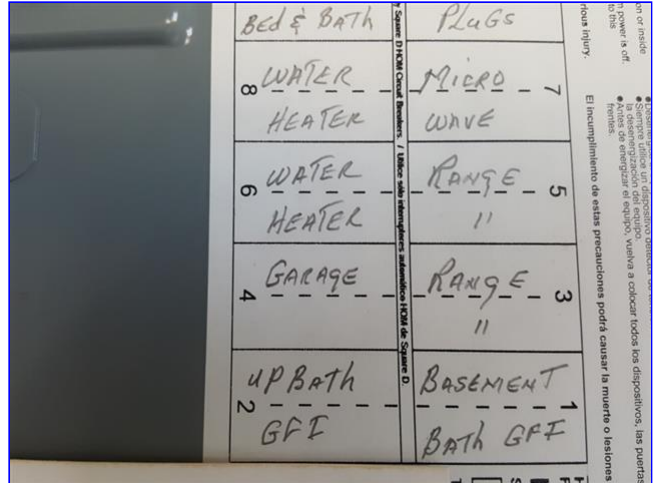 BEd & BATH
PLUGS
8 WATER
HEATER
MICRO 7
WAVE
6 WATER
HEATER
RANGE 5
"
4 GARAGE
RANGE 3
"
2 UP BATH
GFI
BASEMENT 1
BATH GFI
y Square D HOM Circuit Breakers. / Utilice sólo interruptores automático HOM de Square D.
on or inside
n power is off.
to this
rious injury.
Siempre utilice un dispositivo detector de
la desenergización del equipo.
Antes de energizar el equipo, vuelva a colocar todos los dispositivos, las puertas
frentes.
El incumplimiento de estas precauciones podrá causar la muerte o lesiones